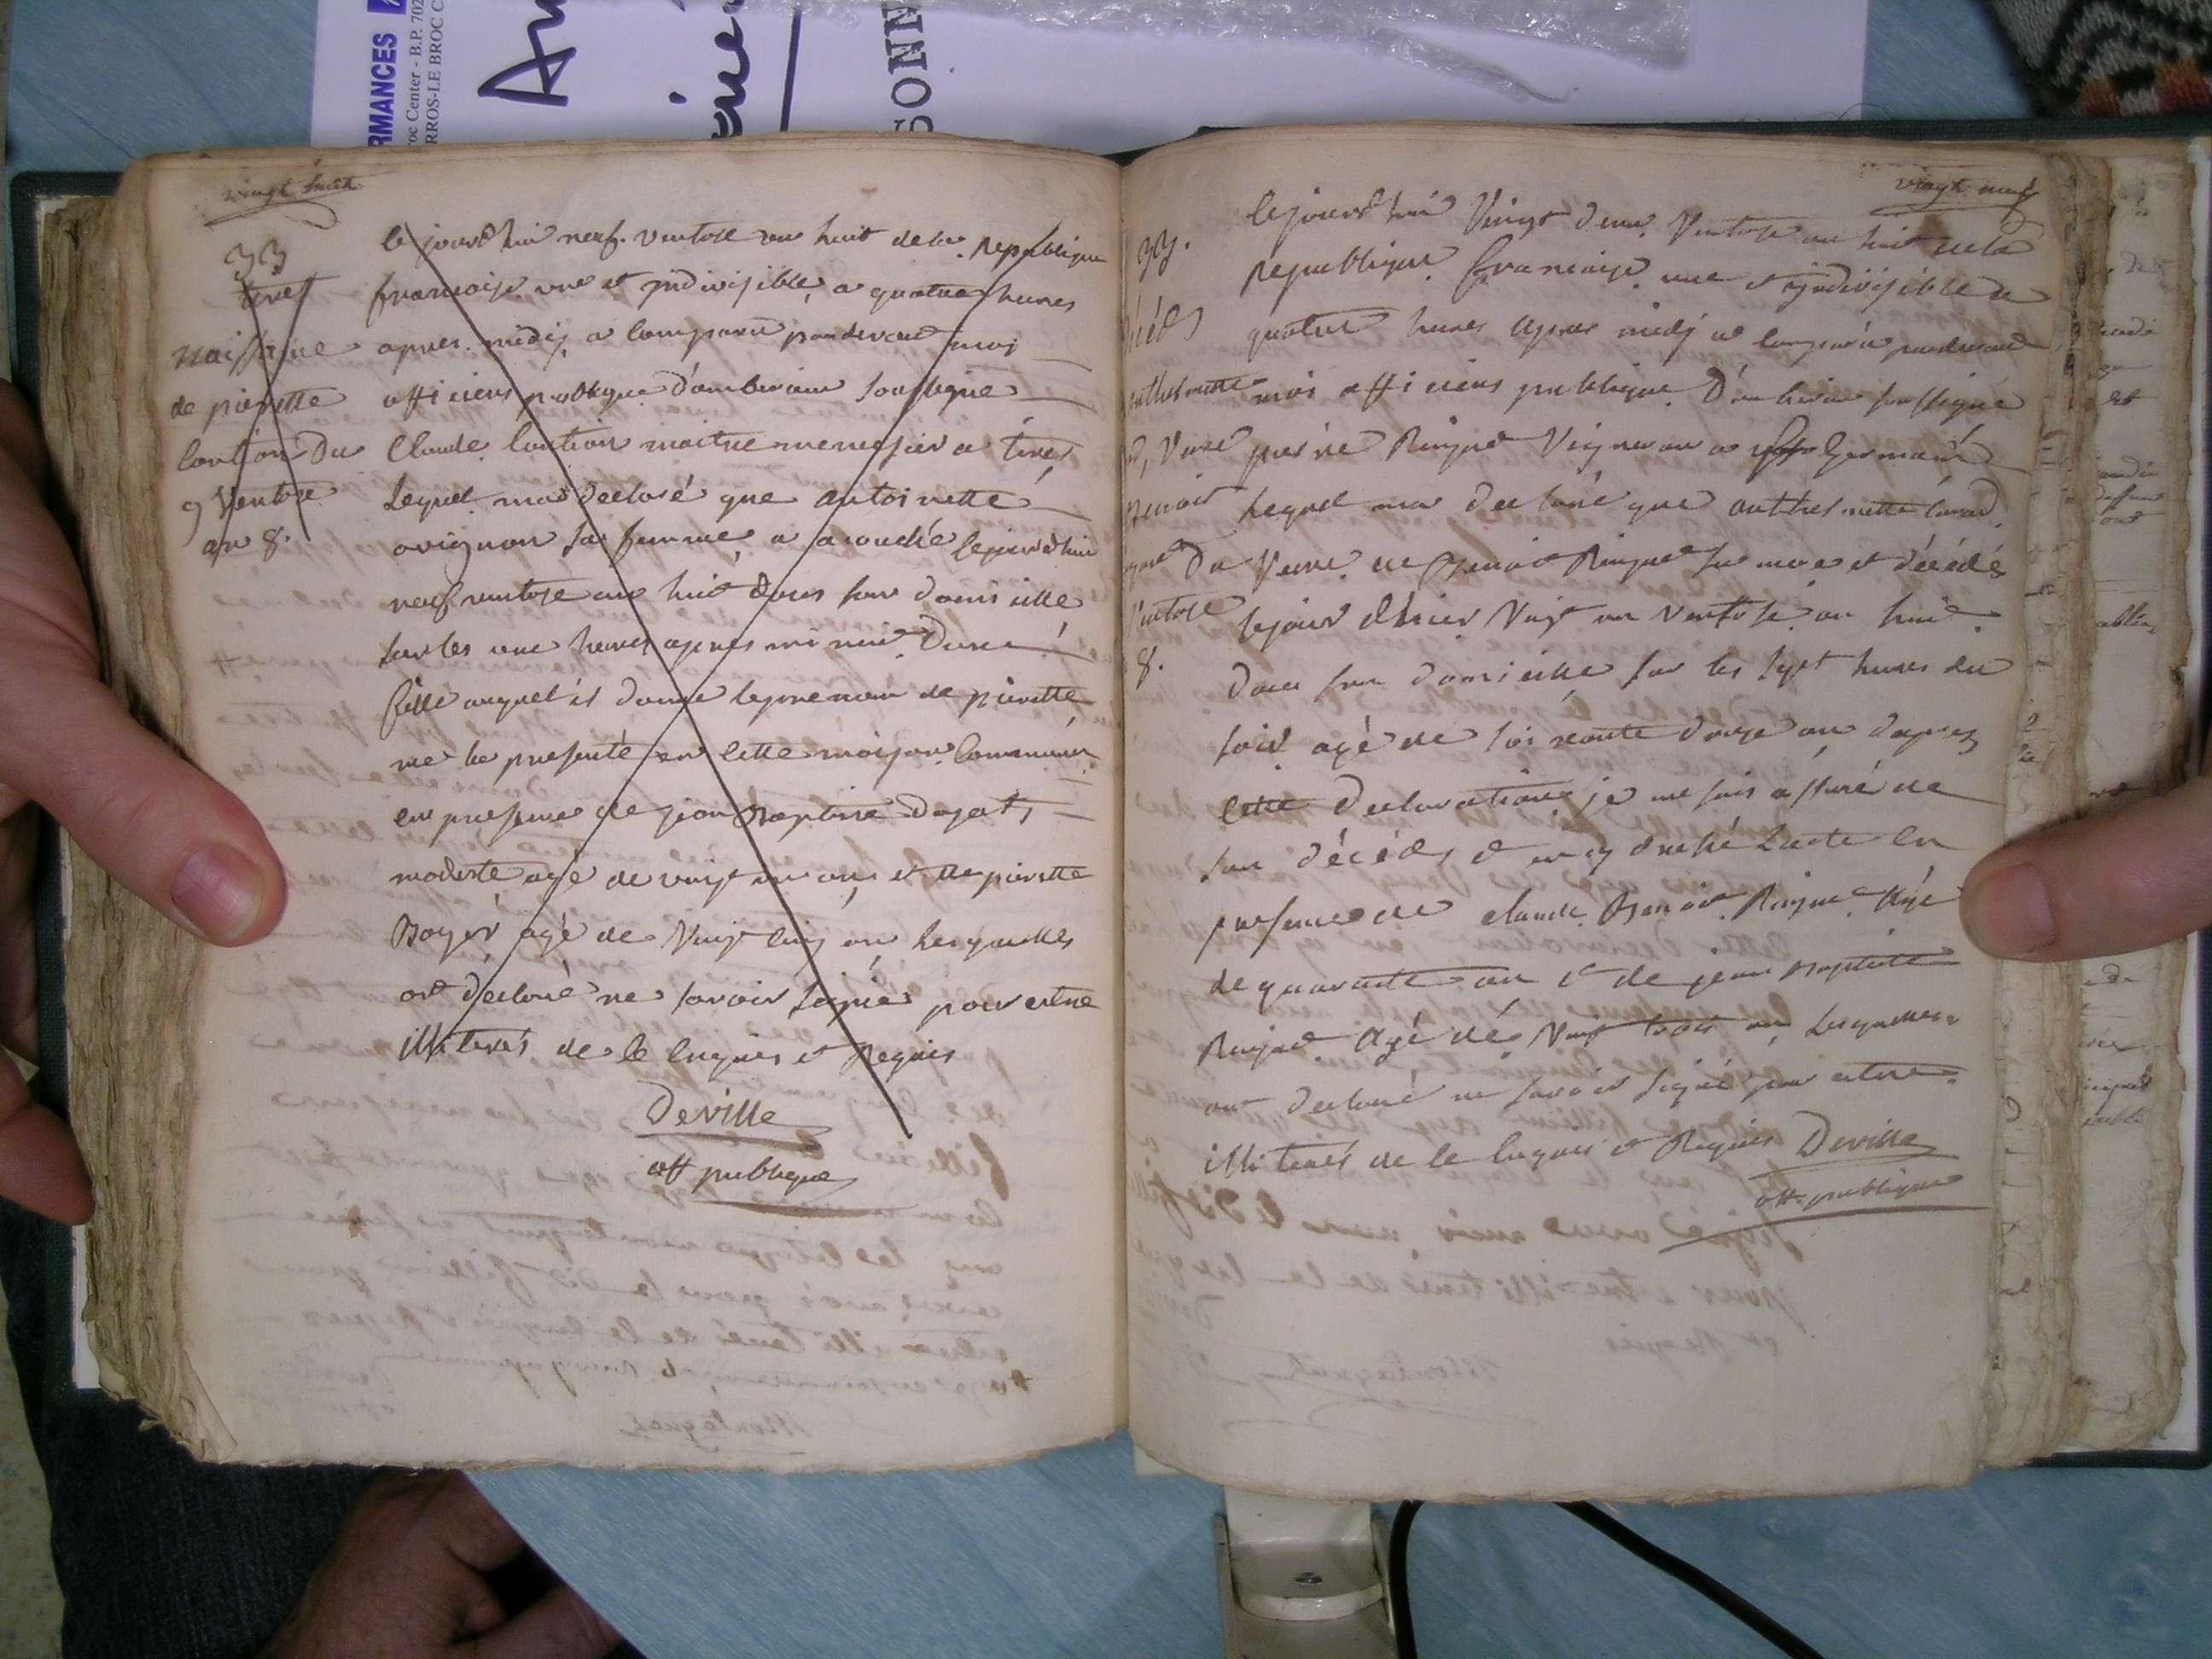 RMANCES
roc Center - B.P. 702
RROS-LE BROC C
An
SONN
vingt huit
33
naissance
de pierette
loution du
9 Ventose
an 8.
le jourd'hui neuf ventose an huit de la republique
francoise une et indivisible, a quatre heures
apres midy a comparu pardevant moy
officiers publique d'amberieux soussigné
Claude loution maitre menusier a
Lequel ma declaré que antoinette
avignon sa femme, a acouché lejourd'hui
neuf ventose an huit dans son domicille
sur les une heures apres mi nuit Dune
fille auquel il donne leprenom de pierette
me la presenté en cette maison Commune
en presence de jean Baptiste
modeste agé de vingt un ans et de pierette
Boyer agé de Vingt cinq ans Lesquelles
ont declaré ne savoir signé pour estre
illiterés de le enquis et Requis
Deville
off publique
vingt neuf
33.
Ventose
8.
lejourd'hui Vingt deux Ventose an huit de la
republique francaise une et indivisible a
quatre heures apres midy a comparu pardevant
moi officiers publique D'amberieux soussigné
pierre Vigneron a germain
Lequel ma declaré que
Veuve de Benoit sa mere et décédé
lejour d'hier Vingt un Ventose an huit
dans son domicille sur les sept heures du
soir agé de soixante douze an dapres
cette declaration je me suis assuré de
son décédés et en ay dressé Lacte en
presence de claude Benoit agé
de quarante an et de jean Baptiste
agé dé Vingt trois an Lesquelles
ont declaré ne savoir signé pour estre
illiterés de le enquis et Requis Deville
off. publique